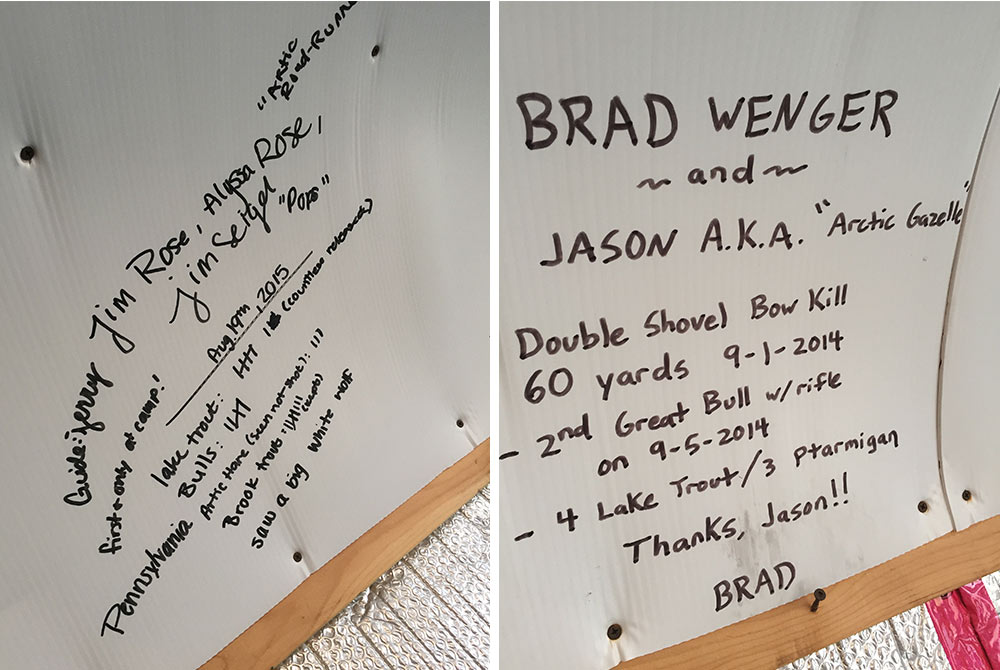 "Artic
Road-Runne
Guide: Jerry Jim Rose, Alyssa Rose,
Jim Seigel "Pops"
first & only at camp!
Aug 19th, 2015
lake trout: (countless released)
Bulls:
Pennsylvania Artic Hare (seen not shot): III
Brook trout:
saw a big white wolf
BRAD WENGER
~ and ~
JASON A.K.A. "Arctic Gazelle"
Double Shovel Bow Kill
60 yards 9-1-2014
- 2nd Great Bull w/rifle
on 9-5-2014
- 4 Lake Trout/3 Ptarmigan
Thanks, Jason!!
BRAD